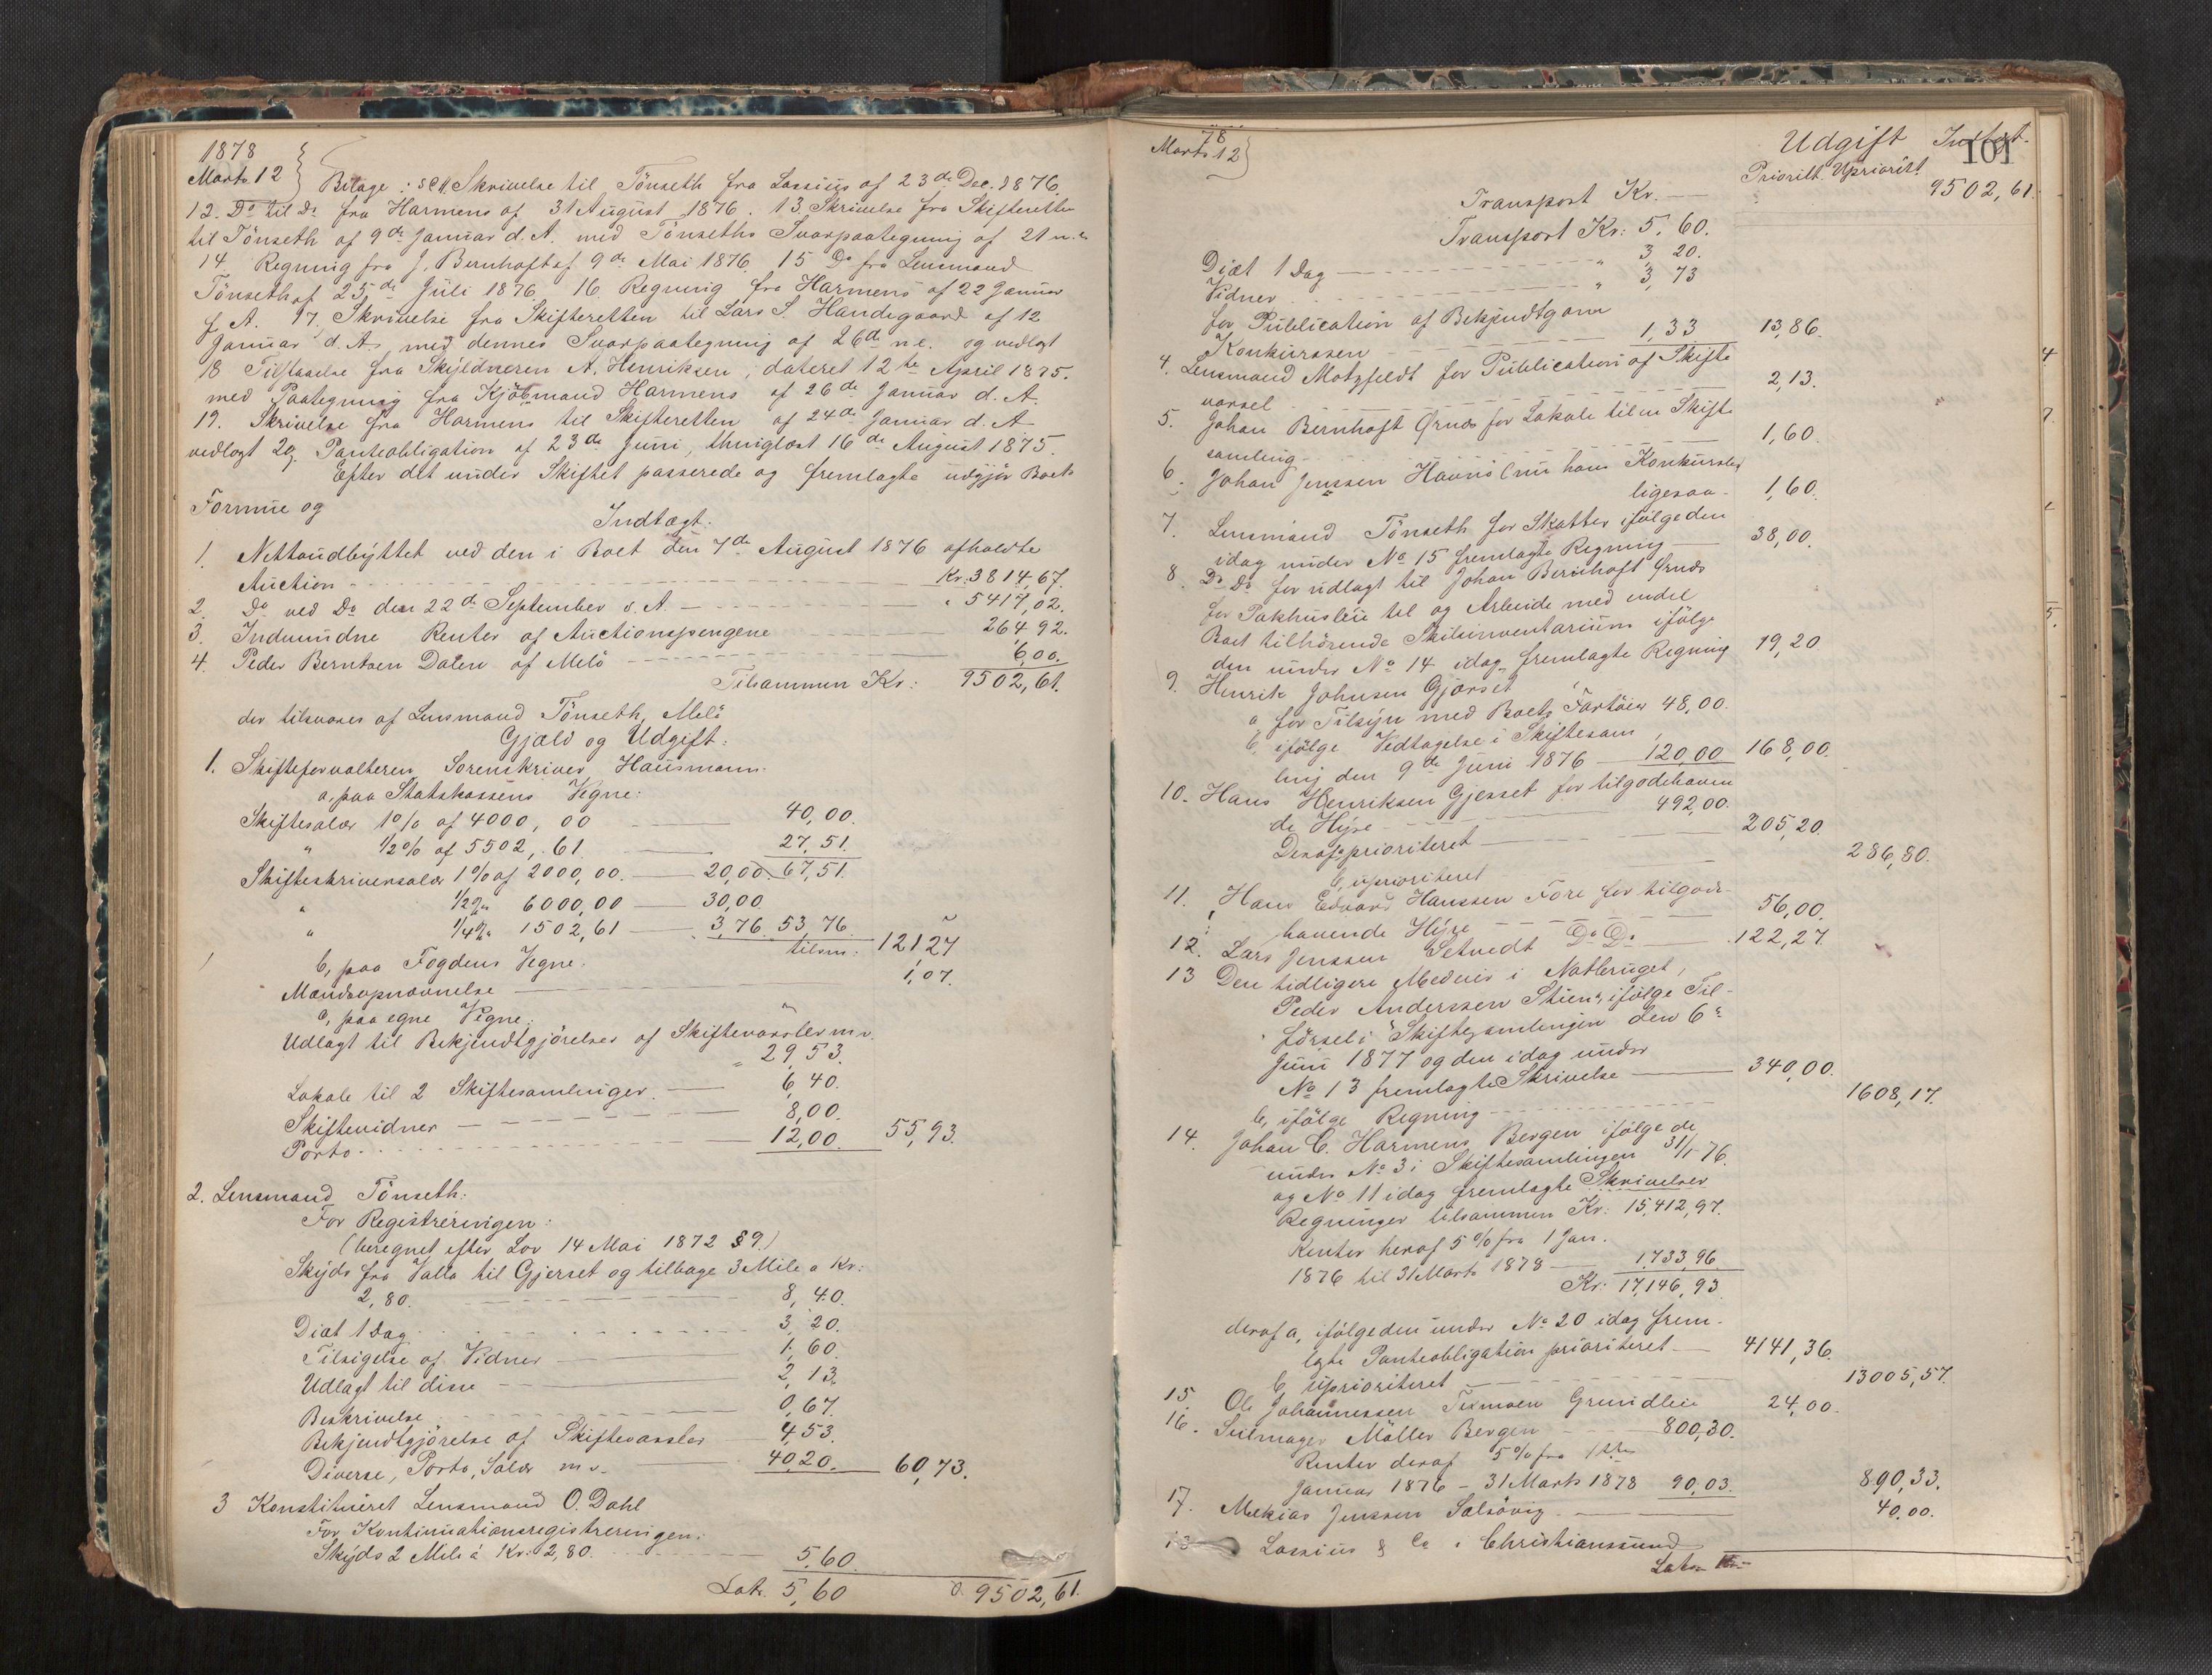 1878
Marts 12
Bilage: Skrivelse til Tönseth fra Lossius af 23de Dec. 1876.
12. Do til Do fra Harmens af 31 August 1876. 13 Skrivelse fra Skifteretten
til Tönseth af 9de Januar d. A. med Tönseths Svarpaategning af 21 n.e.
14 Regning fra J. Bernhoft af 9de Mai 1876. 15 Do fra Lensmand
Tönseth af 25de Juli 1876 16 Regning fra Harmens af 22 Januar
f. A. 17. Skrivelse fra Skifteretten til Lars S. Handegaard af 12
Januar d. A. med dennes Svarpaategning af 26de n.e. og vedlagt
18 Tilstaaelse fra Skyldneren A. Henriksen, dateret 12te April 1875.
med Paategning fra Kjöbmand Harmens af 26de Januar d. A.
19. Skrivelse fra Harmens til Skifteretten af 24de Januar d. A
vedlagt 20, Panteobligation af 23de Juni, thinglæst 16de August 1875.
Efter det under Skiftet passerede og fremlagte udgjör Boets
Formue og
Indtægt:
1. Nettoudbyttet ved den i Boet den 7de August 1876 afholdte
Auction Kr: 3814,67.
2. Do ved Do den 22de September s. A. " 5417,02.
3. Indvundne Renter af Auctionspengene 264 92.
4. Peder Berntsen Dalen af Melö 6,00.
Tilsammen Kr: 9502,61.
der tilsvares af Lensmand Tönseth, Melö
Gjæld og Udgift:
1. Skifteforvalteren Sorenskriver Hausmann.
a, paa Statskassens Vegne:
Skiftesalær 1% af 4000,00 40,00.
" 1/2% af 5502,61. 27,51.
Skifteskriversalær 1% af 2000,00. 20,00. 67,51.
" 1/2% " 6000,00 30,00.
" 1/4% " 1502,61 3,76 53,76
tilsm: 121,27
b, paa Fogdens Vegne.
Mandsopnævnelse 1,07.
c, paa egne Vegne:
Udlagt til Bekjendtgjörelser af Skiftevarsler m.v.
" 29,53.
Lokale til 2 Skiftesamlinger. 6,40.
Skiftevidner 8,00.
Porto 12,00. 55,93.
2. Lensmand Tönseth:
For Registreringen:
(beregnet efter Lov 14 Mai 1872 § 9.)
Skyds fra Valla til Gjerset og tilbage 3 Mile a Kr:
2,80. 8,40.
Diæt 1 Dag 3,20.
Tilsigelse af Vidner 1,60.
Udlagt til disse 2,13.
Beskrivelse 0,67.
Bekjendtgjörelse af Skiftevarsler 4,53.
Diverse, Porto, Salær m v. 40,20. 60,73.
3 Konstitueret Lensmand O. Dahl
For Kontinuationsregistreringen:
Skyds 2 Mile á Kr: 2,80. 5,60.
Lat. 5,60 9502,61.
78
Marts 12
Udgift Indtægt.
101
Priorit. Upriorit.
Transport Kr. 9502,61.
Transport Kr: 5,60.
Diæt 1 Dag " 3,20.
Vidner " 3,73
for Publication af Bekjendtgørn
Konkurssen 1,33 13,86.
4. Lensmand Motzfeldt for Publication af Skifte
varsel 2,13.
5. Johan Bernhoft Ørnæs for Lokale til en Skifte
samling 1,60.
6. Johan Jenssen Havnås (nu hans Konkursbo)
ligesaa 1,60.
7. Lensmand Tönseth for Skatter ifølge den
idag under No 15 fremlagte Regning 38,00.
8. Do Do for udlagt til Johan Bernhoft Ørnæs
for Pakhusleie til og Arbeide med endel
Boet tilhörende Skibsinventarium ifölge
den under No 14 idag fremlagte Regning 19,20
9. Henrik Johnsen Gjærset
a for Tilsyn med Boets Fartöier 48,00.
b, ifölge Vedtagelse i Skiftesam
ling den 9de Juni 1876 120,00 168,00.
10. Hans Henriksen Gjesset for tilgodehaven
de Hyre 492,00.
Deraf a prioriteret 205,20.
b, uprioriteret 286,80.
11. Hans Edvard Hanssen Fore for tilgode-
havende Hyre 56,00.
12. Lars Jenssen Setvedt Do Do 122,27.
13 Den tidligere Medeier i Notbruget,
Peder Anderssen Stien a, ifölge Til-
försel i Skiftesamlingen den 6te
Juni 1877 og den idag under
No 13 fremlagte Skrivelse 340,00.
b, ifölge Regning 1608,17.
14. Johan C. Harmens Bergen ifölge de
under No 3 i Skiftesamlingen 31/5 76.
og No 11 idag fremlagte Skrivelser
Regninger tilsammen Kr: 15,412,97.
Renter heraf 5% fra 1 Jan.
1876 til 31 Marts 1878 1,733,96
Kr: 17,146,93
deraf a, ifölge den under No 20 idag frem-
lagte Panteobligation prioriteret 4141,36.
b, uprioriteret 13005,57.
15. Ole Johannessen Grundleie 24,00.
16. Seilmager Möller Bergen 800,30.
Renter deraf 5% fra 1ste
Januar 1876 - 31 Marts 1878 90,03. 890,33.
17. Mekias Jenssen Salsövig 40,00.
18 Lossius & Co i Christianssund
Later Kr.
4
7.
5.